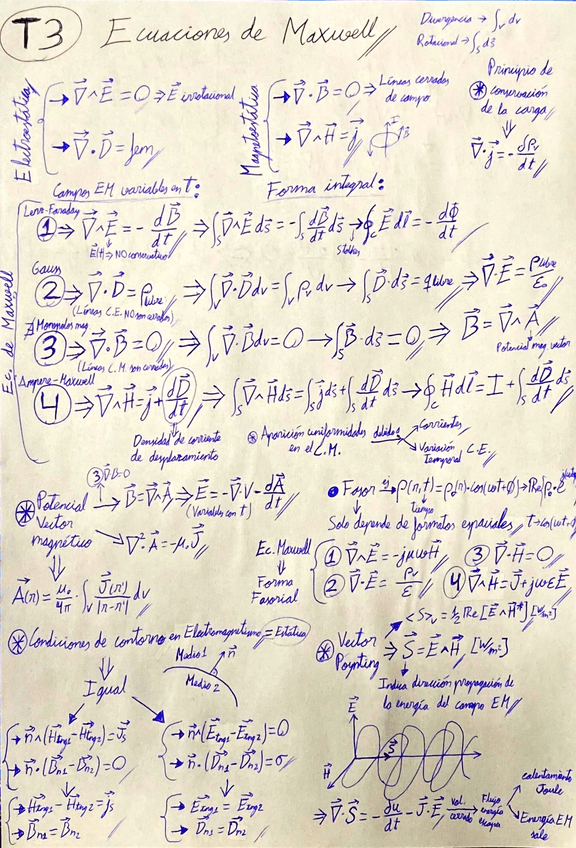 T3 Ecuaciones de Maxwell
Divergencia → ∫ᵥ dv
Rotacional → ∫ₛ ds⃗
Electrostática
→ ∇⃗∧E⃗ = 0 ⇒ E⃗ irrotacional
→ ∇⃗·D⃗ = ρem
Magnetostática
→ ∇⃗·B⃗ = 0 ⇒ Líneas cerradas
de campo
→ ∇⃗∧H⃗ = j⃗
Principio de
⊛ conservación
de la carga
⇓
∇⃗·j⃗ = -dρᵥ/dt
Campos EM variables en t:
Forma integral:
Ec. de Maxwell
Lenz-Faraday
① ⇒ ∇⃗∧E⃗ = -dB⃗/dt ⇒ ∫ₛ ∇⃗∧E⃗ ds⃗ = -∫ₛ dB⃗/dt ds⃗ → ∮c E⃗ dl⃗ = -dΦ/dt
E(t) ⇒ NO conservativo
Stokes
Gauss
② ⇒ ∇⃗·D⃗ = ρlibre ⇒ ∫ᵥ ∇⃗·D⃗ dv = ∫ᵥ ρᵥ dv → ∫ₛ D⃗·ds⃗ = qlibre ⇒ ∇⃗·E⃗ = ρlibre/ε₀
(Líneas C.E. NO son cerradas)
∄ Monopolos mag
③ ⇒ ∇⃗·B⃗ = 0 ⇒ ∫ᵥ ∇⃗·B⃗ dv = 0 → ∫ₛ B⃗·ds⃗ = 0 ⇒ B⃗ = ∇⃗∧A⃗
(Líneas C.M son cerradas)
Potencial mag. vector
Ampere-Maxwell
④ ⇒ ∇⃗∧H⃗ = j⃗ + dD⃗/dt ⇒ ∫ₛ ∇⃗∧H⃗ ds⃗ = ∫ₛ j⃗ ds⃗ + ∫ₛ dD⃗/dt ds⃗ → ∮c H⃗ dl⃗ = I + ∫ₛ dD⃗/dt ds⃗
Densidad de corriente
de desplazamiento
⊛ Aparición uniformidades
en el C.M.
debido a
Corrientes
Variación
temporal C.E.
③ ∇⃗B⃗=0
⊛ Potencial
Vector
magnético
→ B⃗ = ∇⃗∧A⃗ → E⃗ = -∇⃗·V - dA⃗/dt
(Variables con t)
→ ∇⃗²·A⃗ = -μ₀J⃗
⇓
A⃗(r) = μ₀/4π · ∫ᵥ J⃗(r')/|r-r'| dv
• Fasor → ρ(r,t) = ρ₀(r)·cos(ωt+Φ) → Re[ρ₀·e
tiempo
Solo depende de formatos espaciales
t→cos(ωt
Ec. Maxwell
⇓
Forma
Fasorial
① ∇⃗∧E⃗ = -jμωH⃗ ③ ∇⃗·H⃗ = 0
② ∇⃗·E⃗ = ρᵥ/ε ④ ∇⃗∧H⃗ = J⃗ + jωεE⃗
⊛ Condiciones de contorno en Electromagnetismo = Estática
Medio 1
n⃗
Medio 2
⇓
Igual
→ n⃗∧(H⃗tng1 - H⃗tng2) = J⃗s
→ n⃗·(B⃗n1 - B⃗n2) = 0
→ Htng1 - Htng2 = js
→ B⃗n1 = B⃗n2
→ n⃗∧(E⃗tng1 - E⃗tng2) = 0
→ n⃗·(D⃗n1 - D⃗n2) = σ
→ Etng1 = Etng2
→ D⃗n1 = D⃗n2
⊛ Vector
Poynting
<S>ᵥ = ½ Re[E⃗∧H⃗*] [W/m²]
⇒ S⃗ = E⃗∧H⃗ [W/m²]
Indica dirección propagación de
la energía del campo EM
E⃗
S⃗
H⃗
⇒ ∇⃗·S⃗ = -du/dt - J⃗·E⃗
vol.
cerrado
Flujo
energía
escapa
calentamiento
Joule
Energía EM
sale